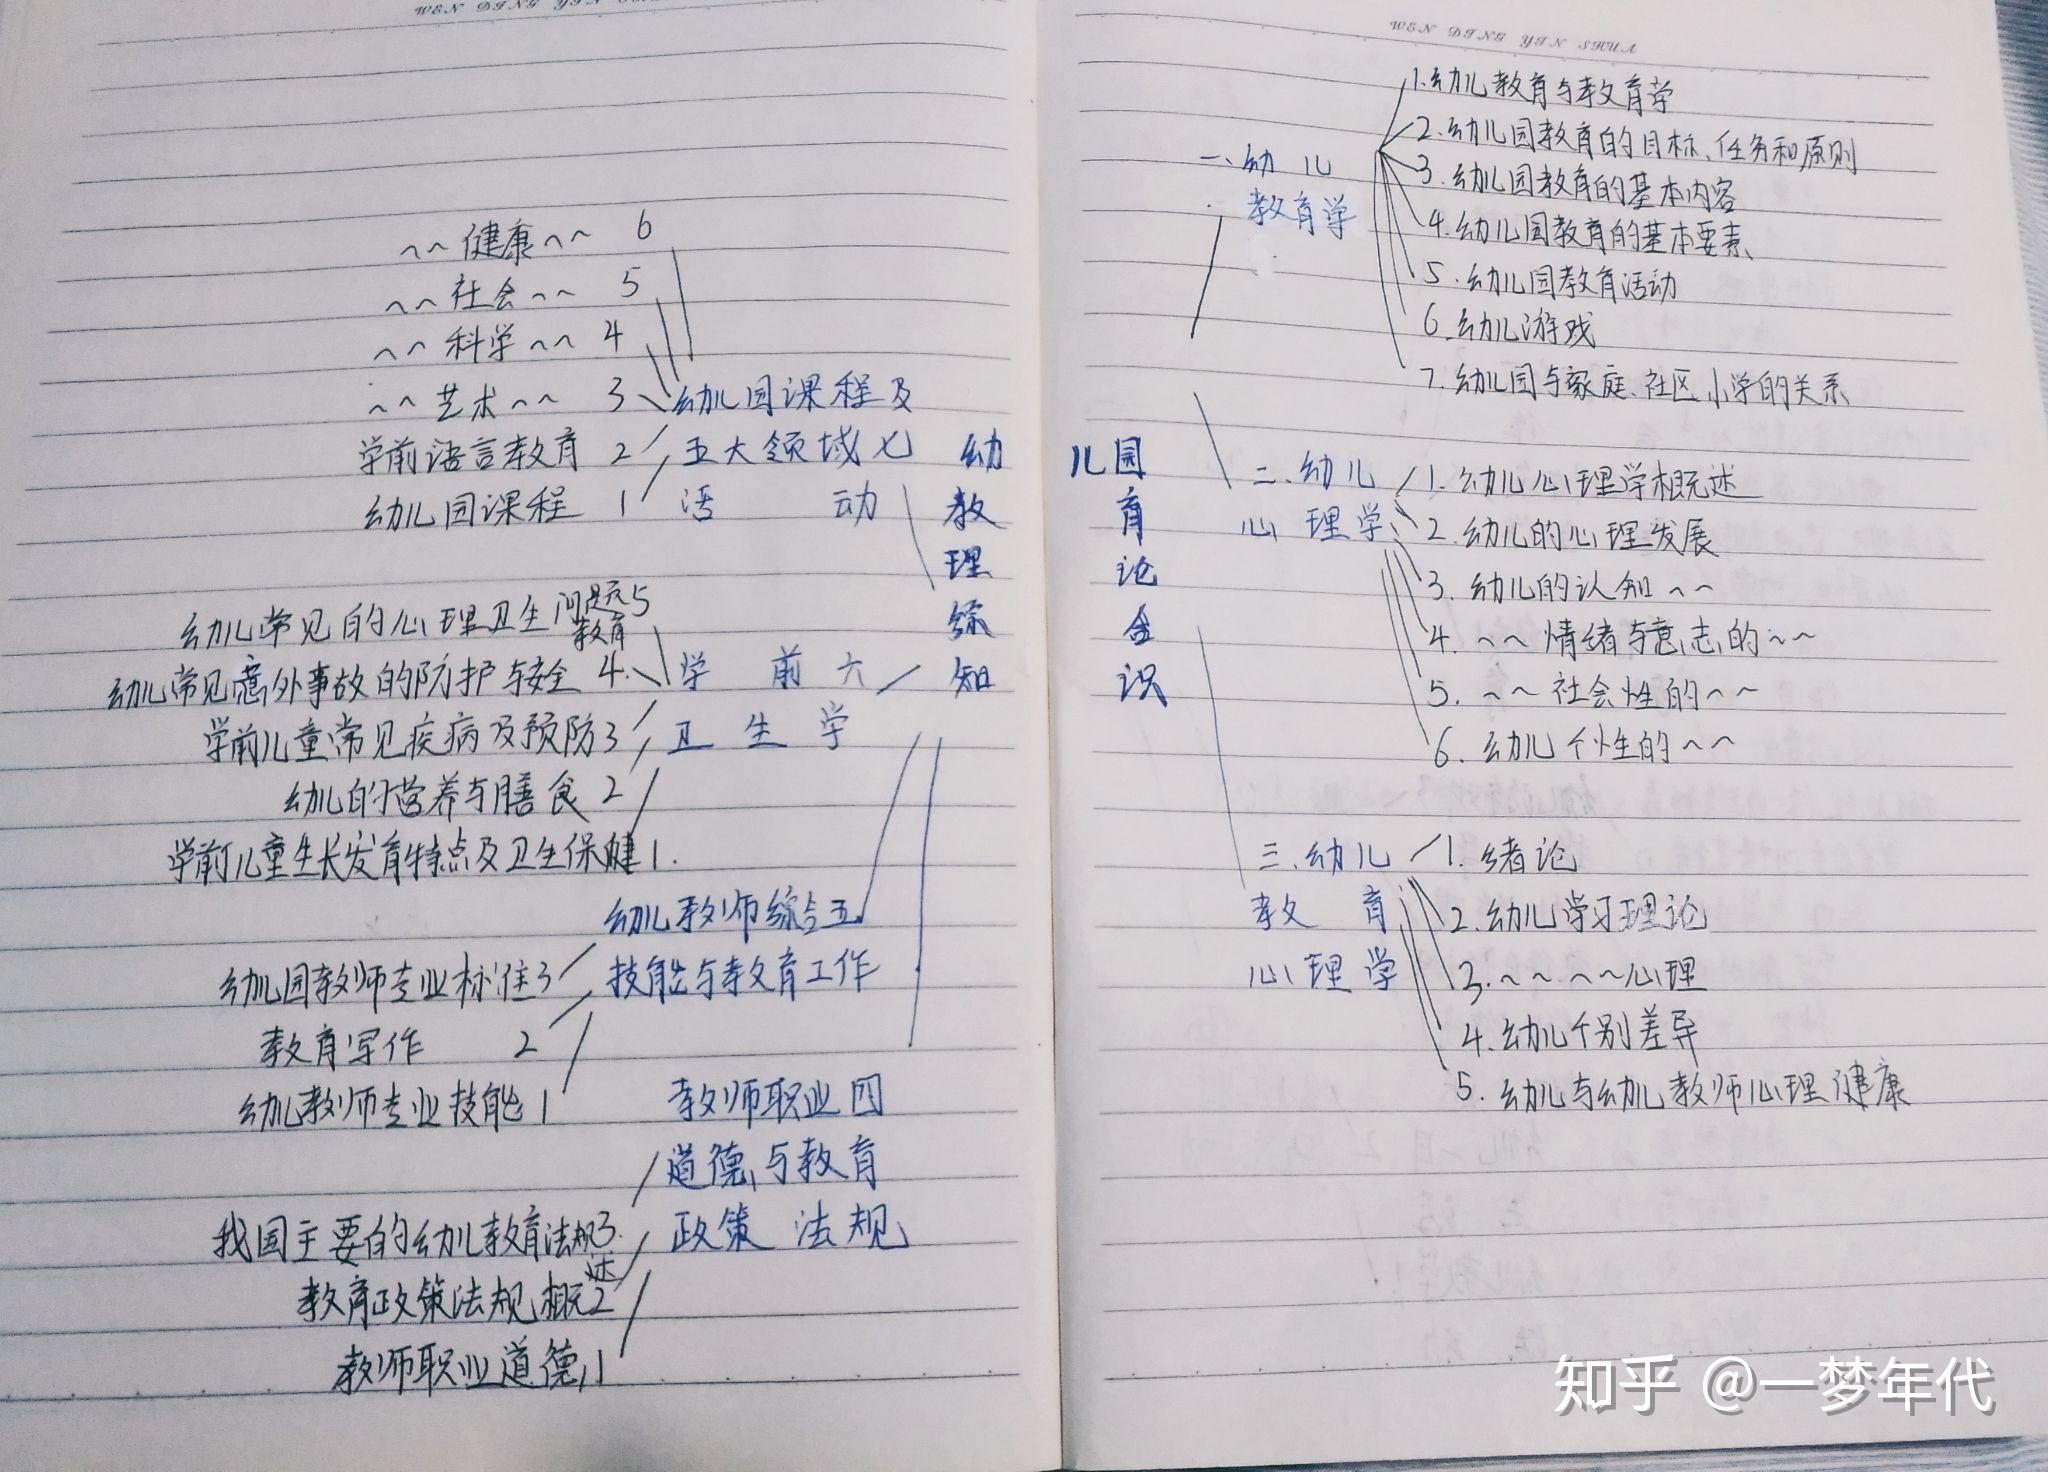 WEN DING YIN
~~健康~~ 6
~~社会~~ 5
~~科学~~ 4
~~艺术~~ 3
学前语言教育 2
幼儿园课程 1
幼儿园课程及
五大领域 七
活动
幼儿常见的心理卫生问题与教育5
幼儿常见意外事故的防护与安全 4.
学前儿童常见疾病及预防3
幼儿的营养与膳食 2
学前儿童生长发育特点及卫生保健1.
学前 六
卫生学
幼儿教师综合五
技能与教育工作
幼儿园教师专业标准3
教育写作 2
幼儿教师专业技能1
教师职业四
道德与教育
政策法规
我国主要的幼儿教育法规3.
教育政策法规概述2
教师职业道德1
幼儿园
教育
理论
综合
知识
WEN DING YIN SHUA
一、幼儿
教育学
1.幼儿教育与教育学
2.幼儿园教育的目标、任务和原则
3.幼儿园教育的基本内容
4.幼儿园教育的基本要素
5.幼儿园教育活动
6.幼儿游戏
7.幼儿园与家庭、社区、小学的关系
二、幼儿
心理学
1.幼儿心理学概述
2.幼儿的心理发展
3.幼儿的认知~~
4.~~情绪与意志的~~
5.~~社会性的~~
6.幼儿个性的~~
三、幼儿
教育
心理学
1.绪论
2.幼儿学习理论
3.~~~~心理
4.幼儿个别差异
5.幼儿与幼儿教师心理健康
知乎 @一梦年代